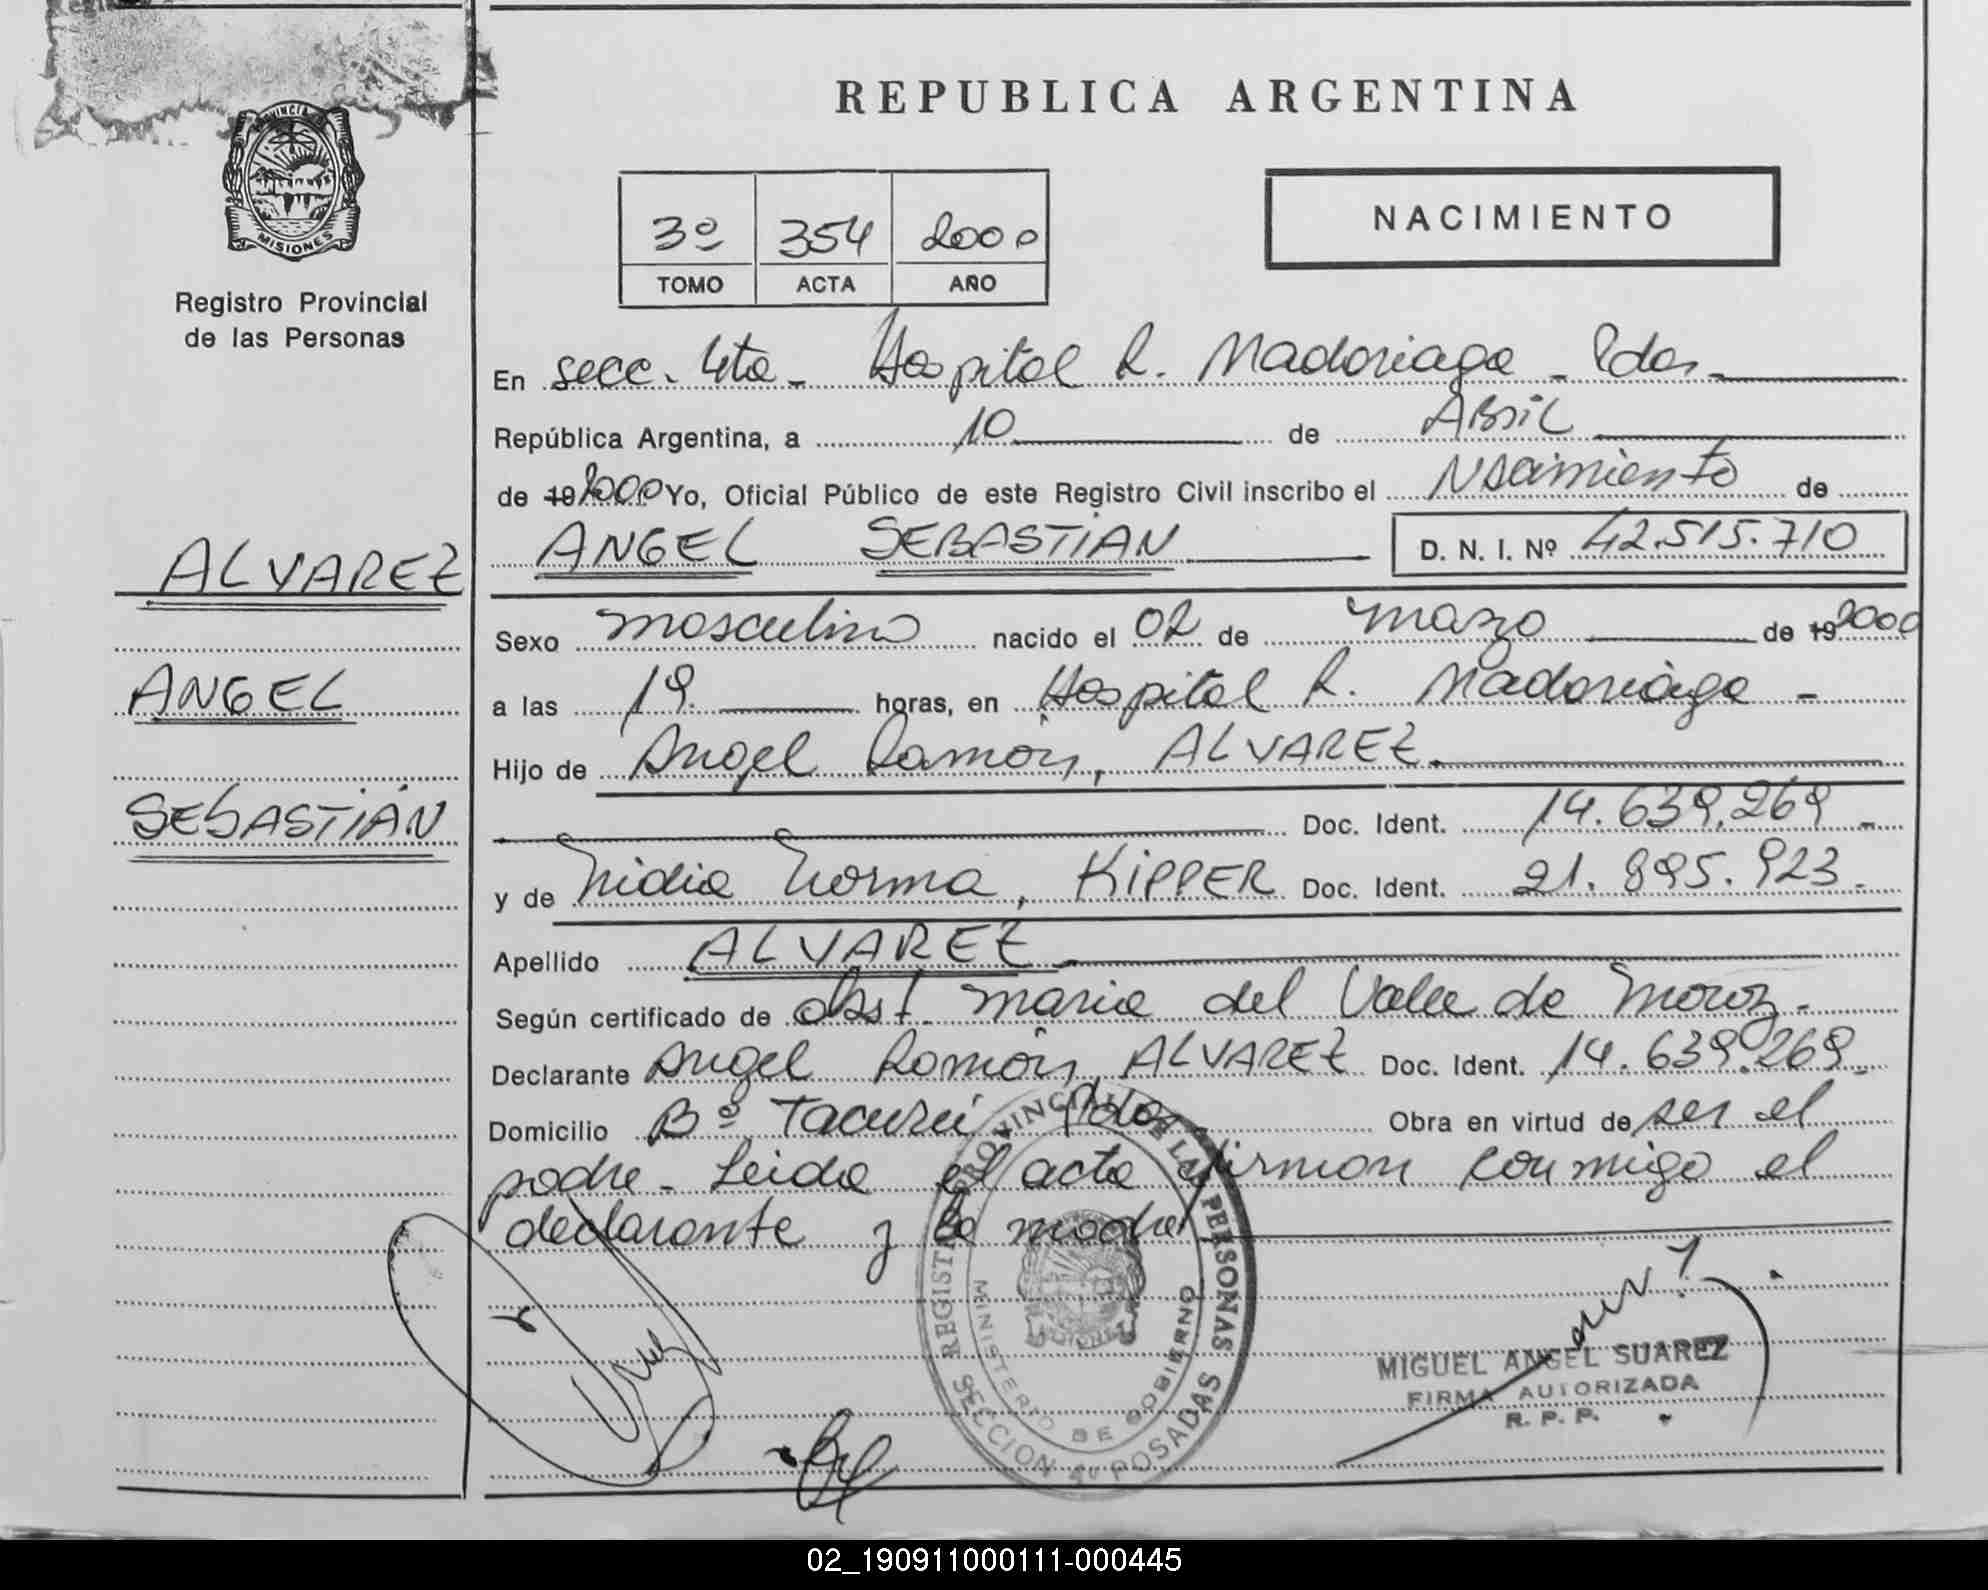 REPUBLICA ARGENTINA
PROVINCIA
MISIONES
Registro Provincial
de las Personas
3º 354 2000
TOMO ACTA AÑO
NACIMIENTO
En secc. 4ta - Hospital R. Madariaga - Pdas -
República Argentina, a 10 de ABRIL
de 19 2000 Yo, Oficial Público de este Registro Civil inscribo el Nacimiento de
ANGEL SEBASTIÁN D. N. I. Nº 42.515.710
ALVAREZ
ANGEL
SEBASTIÁN
Sexo masculino nacido el 02 de marzo de 19 2000
a las 19. horas, en Hospital R. Madariaga -
Hijo de Angel Ramón, ALVAREZ.
Doc. Ident. 14.639.269 -
y de Nidia Norma, KIPPER Doc. Ident. 21.895.923 -
Apellido ALVAREZ
Según certificado de obst. Maria del Valle de Moroz.
Declarante Angel Ramón, ALVAREZ Doc. Ident. 14.639.269 -
Domicilio Bº Tacurú. Pdas. Obra en virtud de ser el
padre - Leida el acta firman conmigo el
declarante y la madre
REGISTRO PROVINCIAL DE LAS PERSONAS
MINISTERIO DE GOBIERNO
SECCION 4º POSADAS
MIGUEL ANGEL SUAREZ
FIRMA AUTORIZADA
R. P. P.
02_190911000111-000445